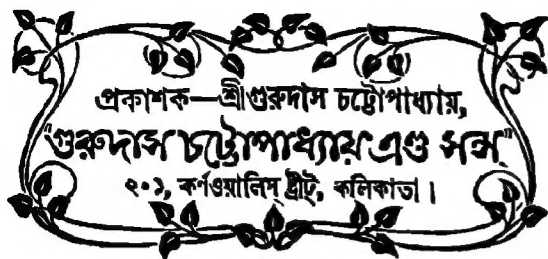 প্রকাশক—শ্রীগুরুদাস চট্টোপাধ্যায়,
"গুরুদাস চট্টোপাধ্যায় এণ্ড সন্স্"
২০১, কর্ণওয়ালিস্ ষ্ট্রীট্, কলিকাতা।